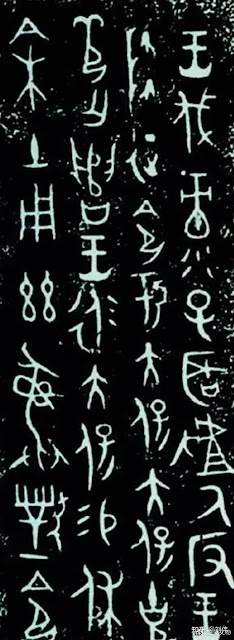 王伐彔子𦔻䖒氒反王
降征令于大保大保克
敬亡遣王永大保易休
余土用茲彝對令
知乎